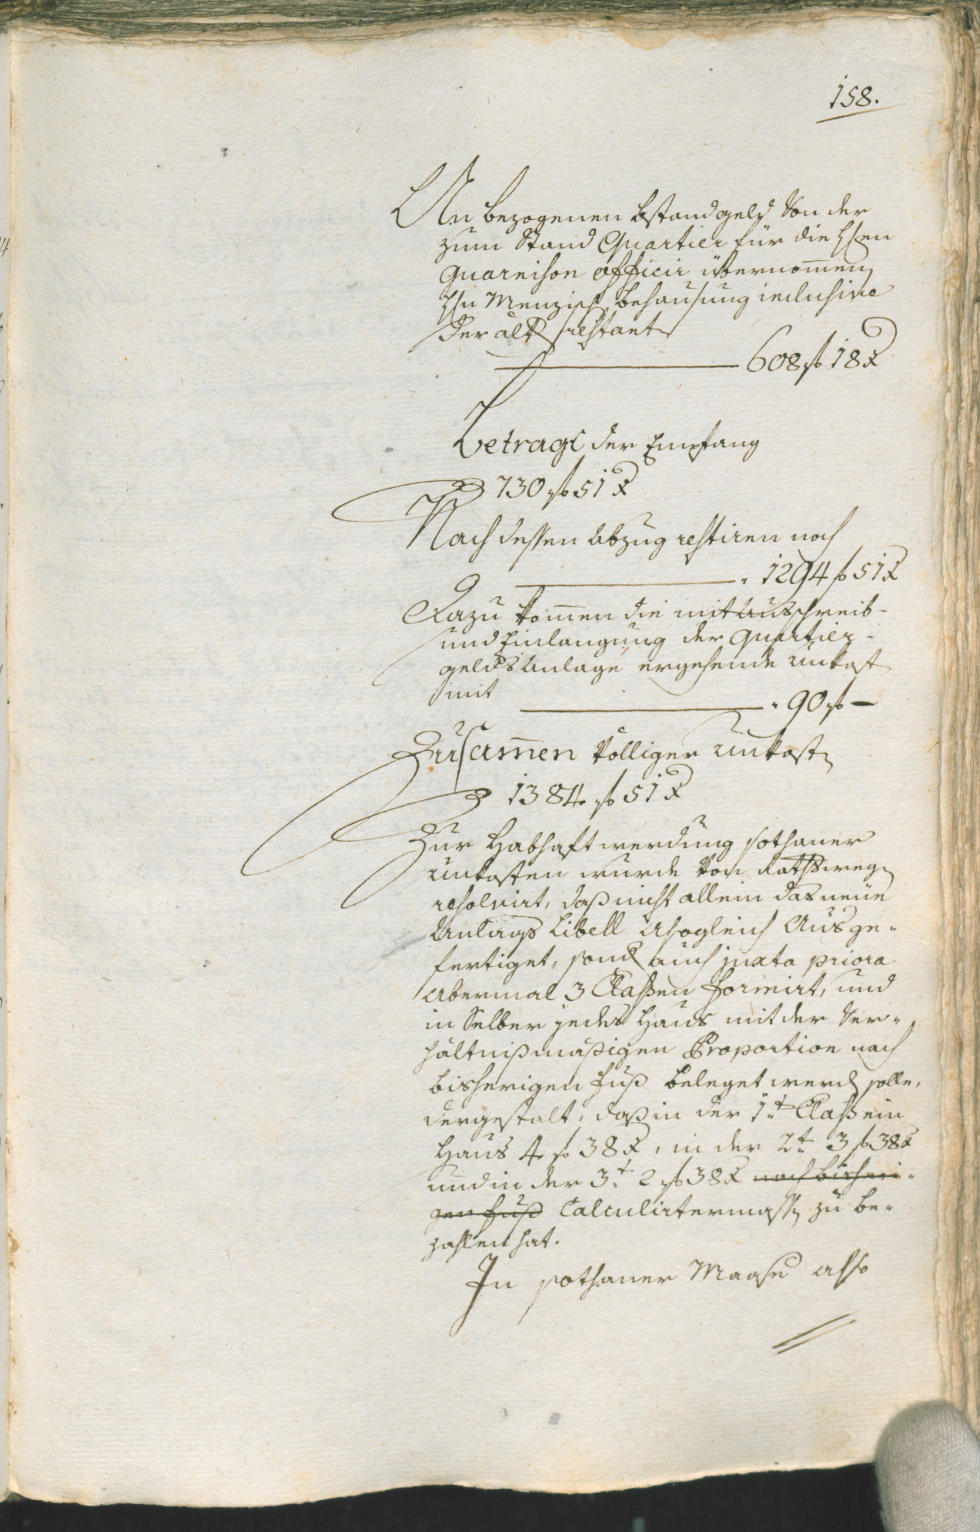 158.
An bezogenen bstandgeld von der
zum Stand Quartier für die Hren
Guarnison officir übernomen
Hrn Menzisch behausung inclusive
der alt restant
608 f 18 x
Betragt der Empfang
730 f 51 x
Nach dessen abzug restiren noch
" 1294 f 51 x
Dazu komen die mit Ausschreib-
und Einlangung der Quartier-
gelds Anlage ergehende Unkost
mit
" 90 f —
Zusamen völliger Unkosten
1384 f 51 x
Zur Habhaftwerdung sothaner
Unkosten wurde von Rathswegen
resolvirt, daß nicht allein das neüe
Anlags Libell sogleich Ausge-
fertiget, sond auch juxta priora
abermal 3 Claßen formirt, und
in Selber jedes Haus mit der Ver-
hältnißmäßigen Proportion nach
bisherigen Fuß beleget werd solle,
dergestalt, daß in der 1t Claß ein
Haus 4 f 38 x, in der 2t 3 f 38 x
und in der 3t 2 f 38 x nach bisheri-
gen Fuß Calculirtermassen zu be-
zahlen hat.
In sothaner Maase also